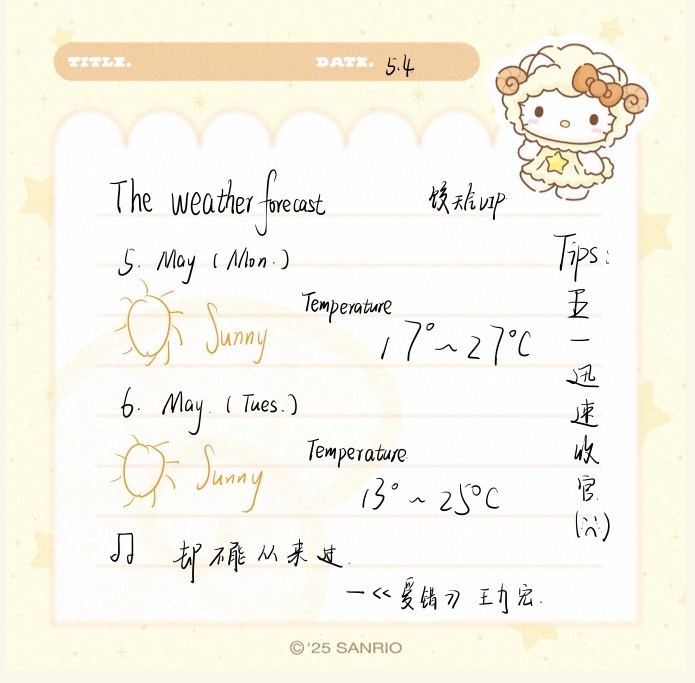 TITLE.
DATE. 5.4
The weather forecast
VIP
5. May (Mon.)
Sunny
Temperature
17°~27°C
6. May. (Tues.)
Sunny
Temperature
13°~25°C
♫ 却不能从来过.
—《爱错》王力宏.
Tips:
五
一
迅
速
收
官
©'25 SANRIO